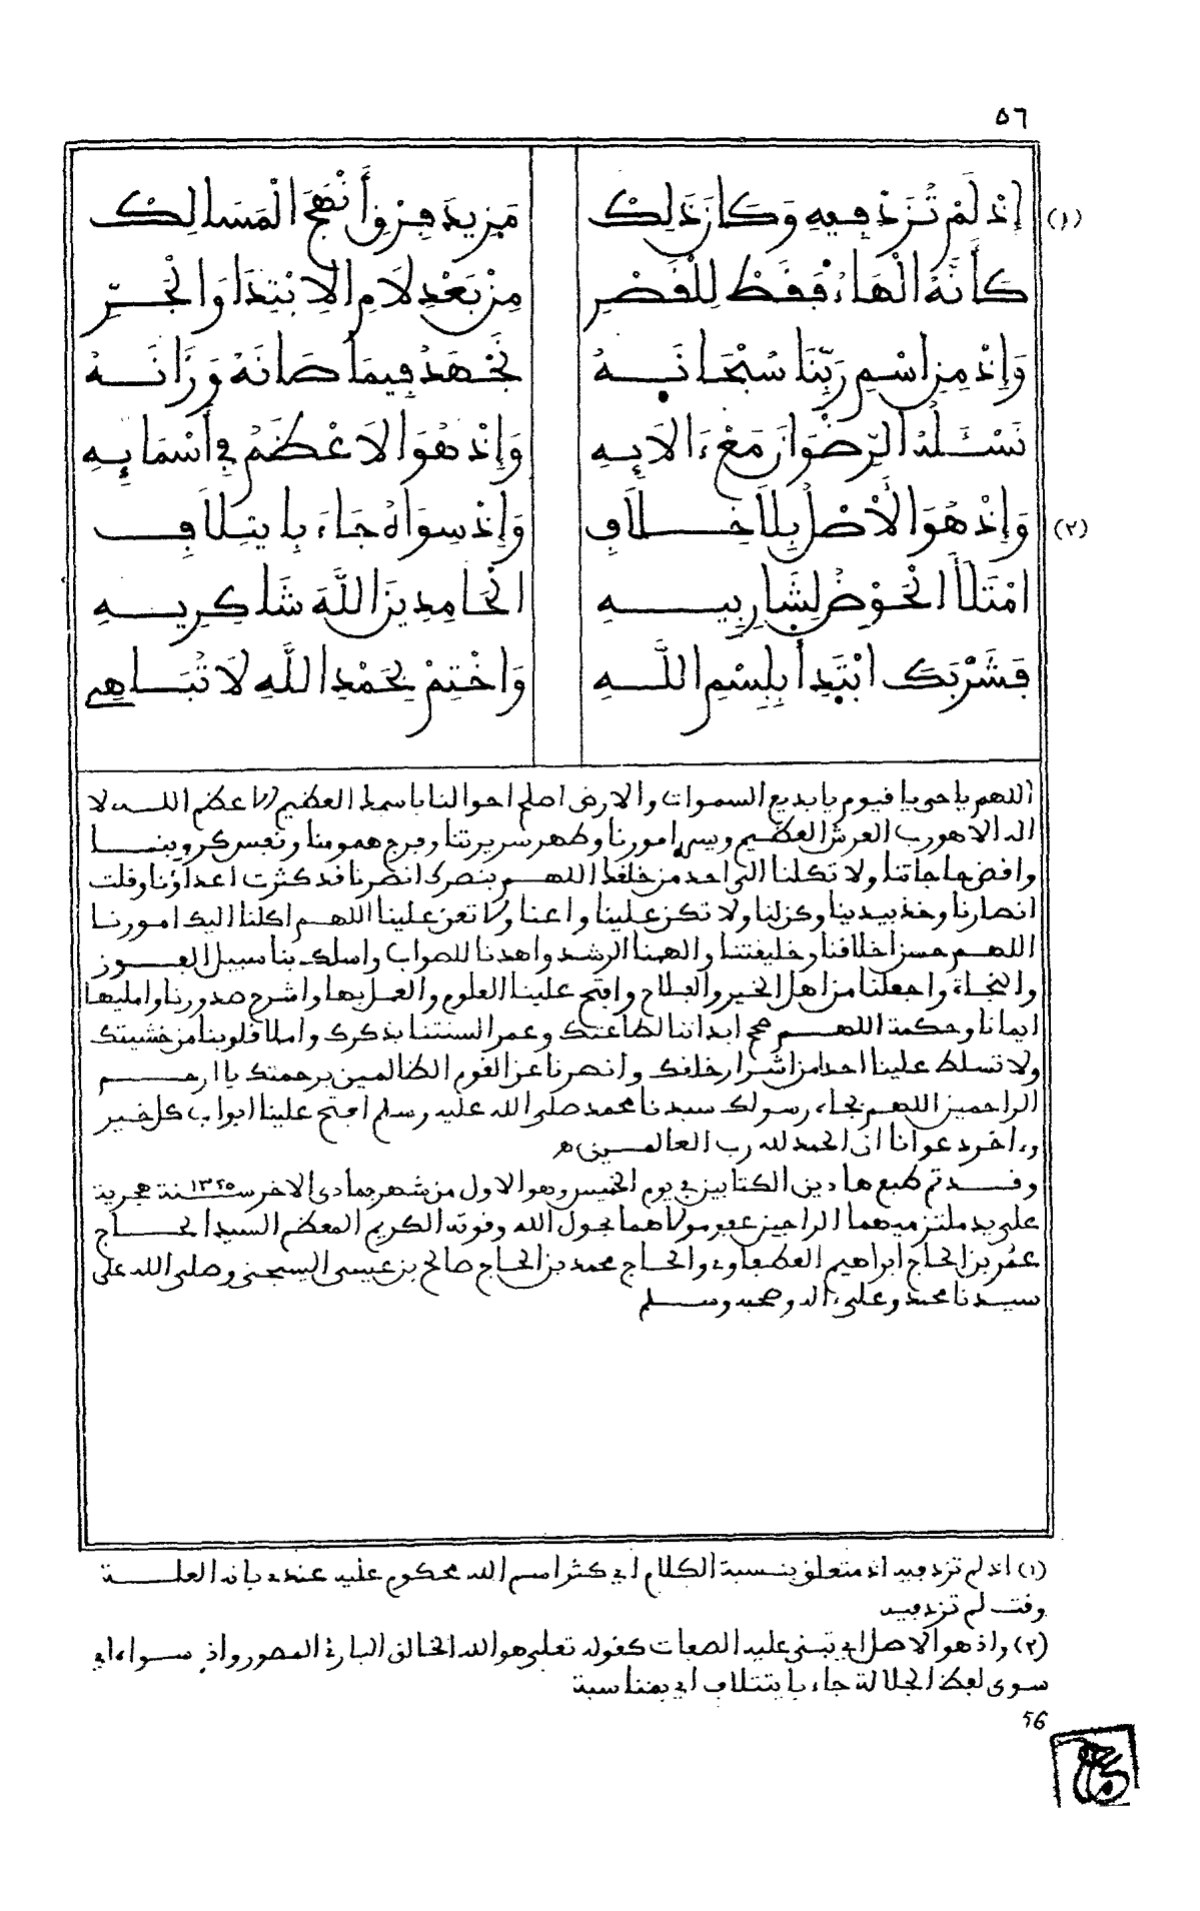 ٥٦
(١) إِذْ لَمْ تُزَدْ فِيهِ وَكَانَ ذَلِكْ مَزِيدَ فِرْقٍ أَنْهَجَ الْمَسَالِكْ
كَأَنَّهُ الْهَاءُ فَقَطْ لِلْقَصْرِ مِنْ بَعْدِ لَامِ الِابْتِدَا وَالْجَرِّ
وَإِذْ مِنِ اسْمِ رَبِّنَا سُبْحَانَهُ نَجْهَدُ فِيمَا صَانَهُ وَزَانَهُ
نَسْـَٔلُهُ الرِّضْوَانَ مَعْ ءَالَايِهِ وَإِذْ هُوَ الَاعْظَمُ فِي أَسْمَايِهِ
(٢) وَإِذْ هُوَ الْأَصْلُ بِلَا خِلَافِ وَإِذْ سِوَاهُ جَاءَ بِايتِلَافِ
امْتَلَأَ الْحَوْضُ لِشَارِبِيهِ الْحَامِدِينَ اللَّهَ شَاكِرِيهِ
فَشُرْبَكَ ابْتَدِأْ بِبِسْمِ اللَّهِ وَاخْتِمْ بِحَمْدِ اللَّهِ لَا تُبَاهِي
اللهم يا حي يا قيوم يا بديع السموات والارض اصلح احوالنا باسمك العظيم الاعظم اللـه لا
اله الا هو رب العرش العظيم ويسر امورنا وطهر سريرتنا وفرج همومنا ونفس كروبنـا
واقض حاجاتنا ولا تكلنا الى احد من خلقك اللهـم بنصرك انصرنا فقد كثرت اعداؤنا وقلت
انصارنا وخذ بيدينا وكن لنا ولا تكن علينا واعنا ولا تعن علينا اللهـم اكلنا اليك امورنـا
اللهـم حسن اخلاقنا وخليقتنا والهمنا الرشد واهدنا للصواب واسلك بنا سبيل الفـوز
والنجاة واجعلنا من اهل الخير والفلاح وافتح علينا العلوم والعمل بها واشرح صدورنا واملها
ايمانا وحكمة اللهـم صحح ابداننا لطاعتك وعمر السنتنا بذكرك واملا قلوبنا من خشيتك
ولا تسلط علينا احدا من اشرار خلقك وانصرنا عن القوم الظالمين برحمتك يا ارحـم
الراحمين اللهـم بجاه رسولك سيدنا محمد صلى الله عليه وسلم افتح علينا ابواب كل خير
وءاخر دعوانا ان الحمد لله رب العالمـين ه
وقـد تم طبع هاذين الكتابين في يوم الخميس وهو الاول من شهر جمادى الاخر سـنة ١٣٢٥ هجرية
على يد ملتزميهما الراجين عفو مولاهما بحول الله وقوته الكريم المعظم السيد الحـاج
عمُر بن الحاج ابراهيم العطفاوي والحاج محمد بن الحاج صالح بن عيسى اليسجني وصلى الله على
سيدنا محمد وعلى ءاله وصحبه وسـلم
(١) اذ لم تزد فيه اذ متعلق بنسبة الكلام اي كثر اسم الله محكوم عليه عنده بانه العلـة
وقت لم تزد فيه
(٢) واذ هو الاصل اي تبنى عليه الصفات كقوله تعلى هو الله الخالق البارئ المصور واذ سـواه اي
سوى لفظ الجلالة جاء بايتلاف اي بمناسبة
56